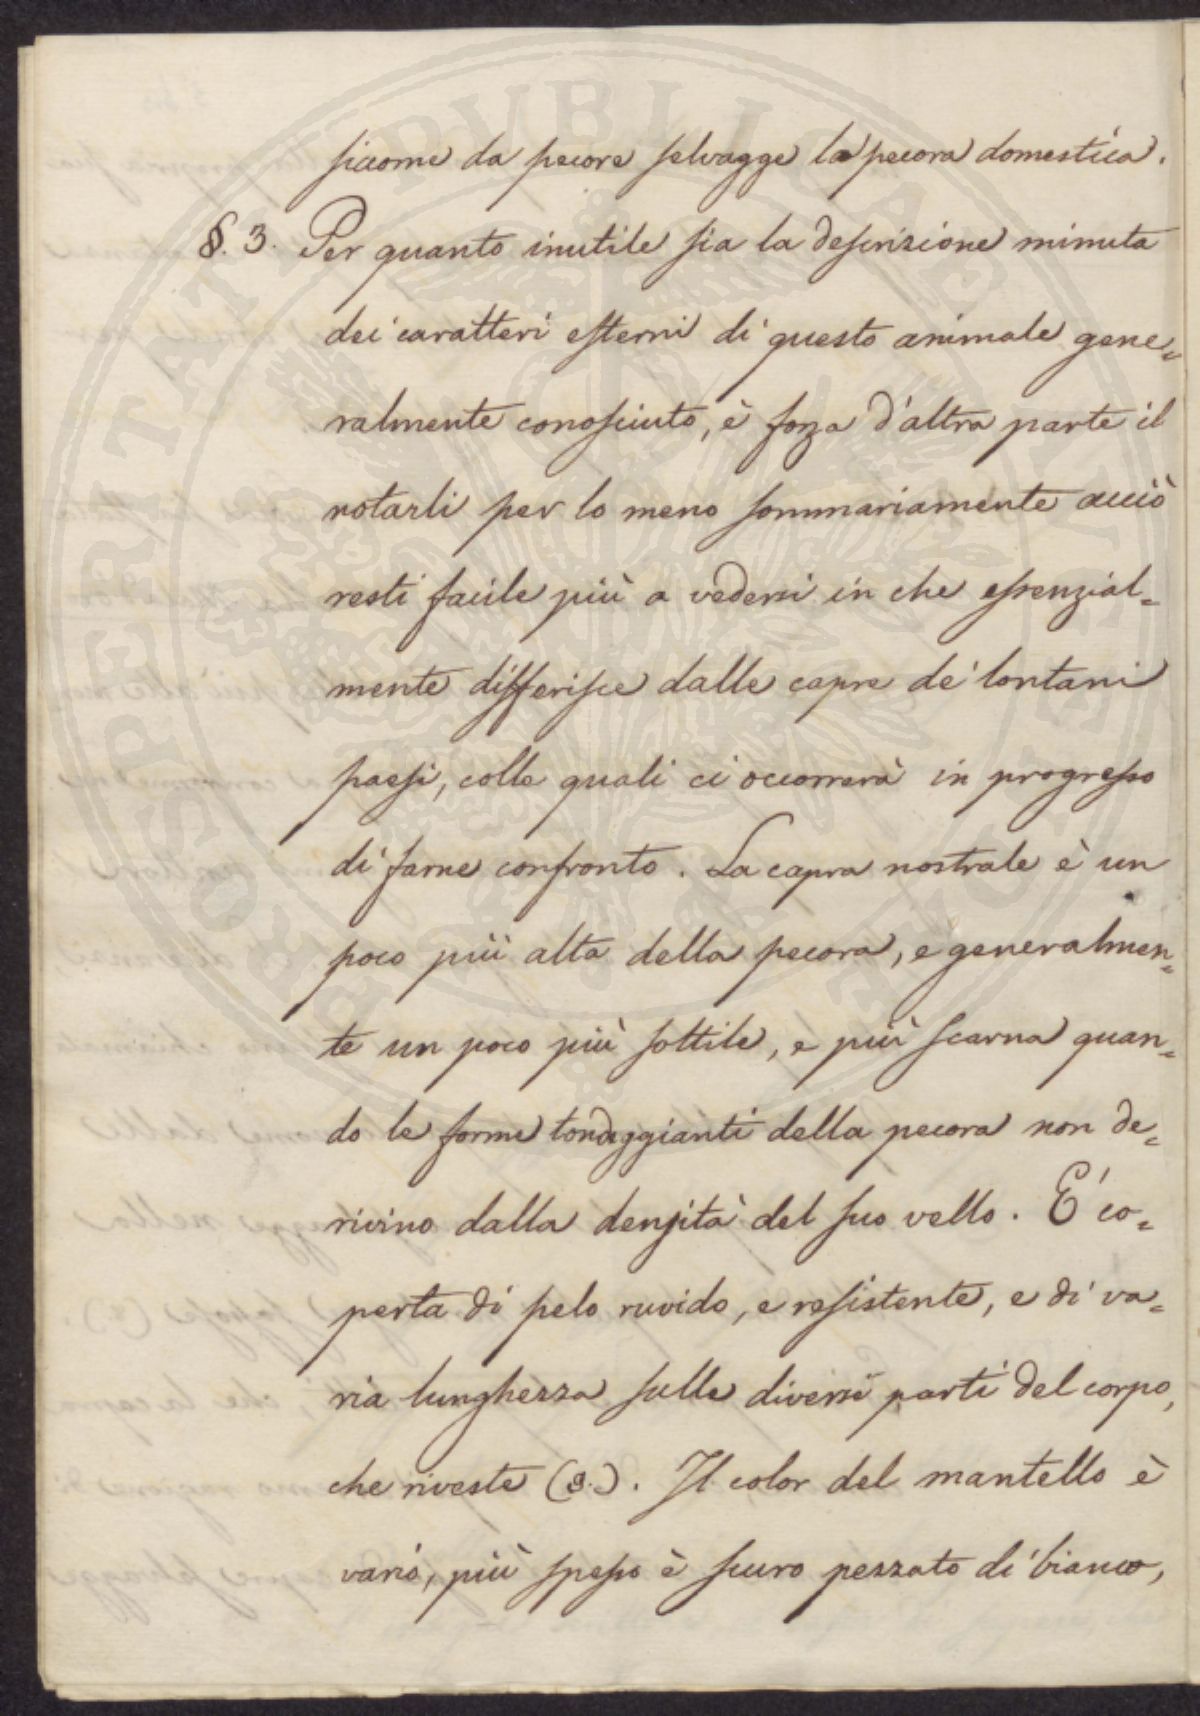 siccome da pecore selvagge la pecora domestica.
§. 3. Per quanto inutile sia la descrizione minuta
dei caratteri esterni di questo animale gene=
ralmente conosciuto, è forza d'altra parte il
notarli per lo meno sommariamente acciò
resti facile più a vedersi in che essenzial=
mente differisce dalle capre de' lontani
paesi, colle quali ci occorrerà in progresso
di farne confronto. La capra nostrale è un
poco più alta della pecora, e generalmen=
te un poco più sottile, e più scarna quan=
do le forme tondeggianti della pecora non de=
rivino dalla densità del suo vello. E' co=
perta di pelo ruvido, e resistente, e di va=
ria lunghezza sulle diverse parti del corpo,
che riveste (3.). Il color del mantello è
vario, più spesso è scuro pezzato di bianco,
PROSPERITATI PUBLICAE